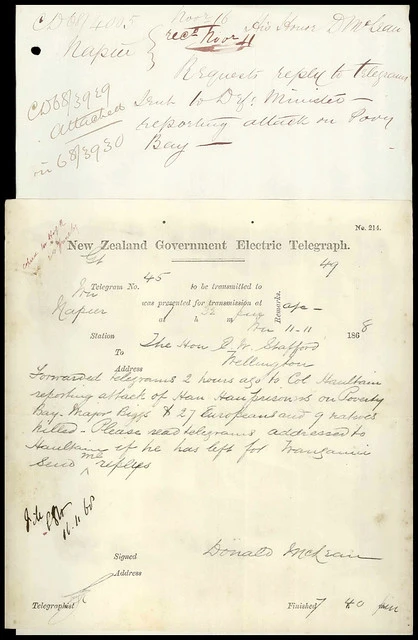 CD68/4005
Napier
Novr 16
recd Novr 11
His Honor D McLean
Requests reply to telegrams
sent to Defc Minister –
reporting attack on Povy
Bay –
CD68/3929
attached
in 68/3930
No. 214.
New Zealand Government Electric Telegraph.
49
Telegram No. 45 to be transmitted to
Napier was presented for transmission at
Remarks.
at h m
11-11 1868
Station
To The Hon E. W. Stafford
Address Wellington
Forwarded telegrams 2 hours ago to Col Haultain
reporting attack of Hau Hau prisoners on Poverty
Bay. Major Biggs & 27 Europeans and 9 natives
killed. Please read telegrams addressed to
Haultain if he has left for Wanganui
Send me replies
File
16.11.68
Signed Donald McLean
Address
Telegraphist
Finished 7 40 pm